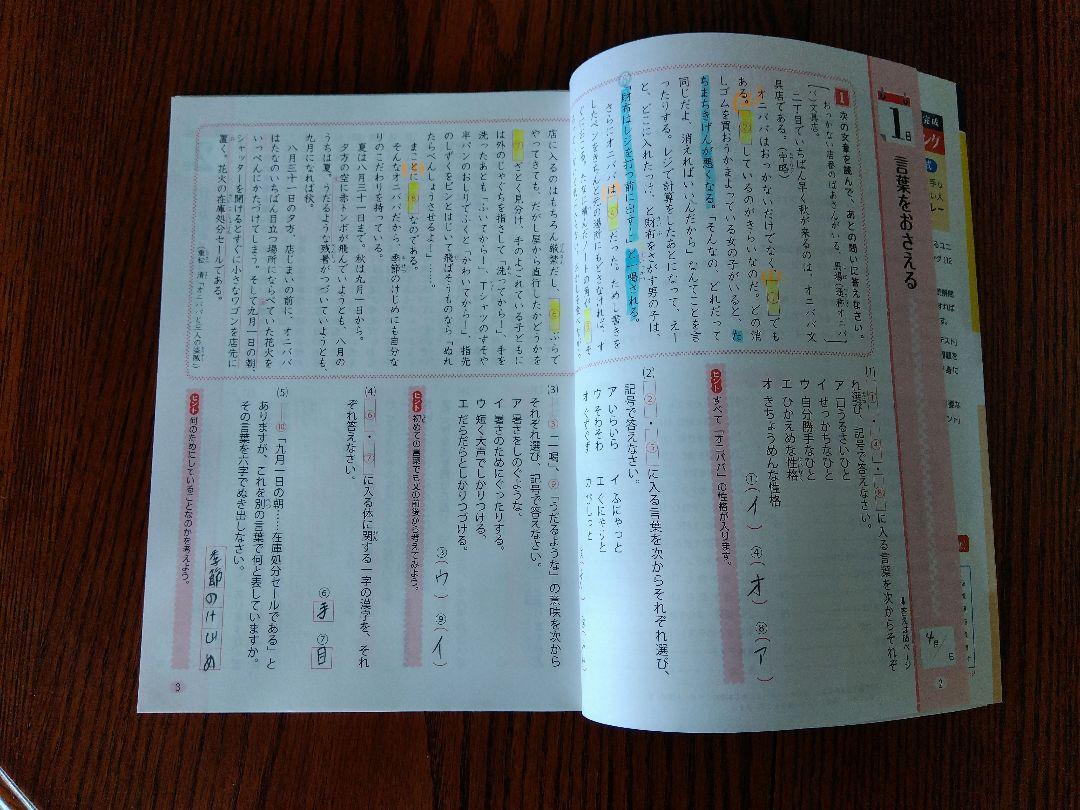 1日
言葉をおさえる
答えは68ページ
1 次の文章を読んで、あとの問いに答えなさい。
おっかない店番のばあさんがいる、馬場
文具店。
二丁目でいちばん早く秋が来るのは、オニババ文
具店である。(中略)
オニババはおっかないだけでなく、①でも
ある。②しているのがきらいなのだ。どの消
しゴムを買おうかまよっている女の子がいると、た
ちまちきげんが悪くなる。「そんなの、どれだって
同じだよ、消えればいいんだから」なんてことを言
ったりする。レジで計算をしたあとになって、えー
と、どこに入れたっけ、と財布をさがす男の子は、
「財布はレジを打つ前に出す!」と一喝される。
さらにオニババは、④だった。ためし書きを
したペンをきちんと元の場所にもどさなければ、オ
店に入るのはもちろん厳禁だし、⑥ぶらで
やってきても、だがし屋から直行したかどうかを
⑦ざとく見分け、手のよごれている子どもに
は外のじゃぐちを指さして「洗ってから!」、手を
洗ったあとも「ふいてから!」、Tシャツのすそや
半パンのおしりでふくと「かわいてから!」、指先
のしずくをピンとはじいて飛ばそうものなら「ぬれ
たらべんしょうさせるよ!」……
まことに⑧なのである。
そんなオニババだから、季節のけじめにも自分な
りのこだわりを持っている。
夏は八月三十一日まで。秋は九月一日から。
夕方の空に赤トンボが飛んでいようとも、八月の
うちは夏。うだるような残暑がつづいていようとも、
九月になれば秋。
八月三十一日の夕方、店じまいの前に、オニババ
はたなのいちばん目立つ場所にならべていた花火を
いっぺんにかたづけてしまう。そして九月一日の朝、
シャッターを開けるとすぐに小さなワゴンを店先に
置く。花火の在庫処分セールである。
(重松 清「オニババと三人の盗賊」)
(1) ①・④・⑧に入る言葉を次からそれぞ
れ選び、記号で答えなさい。
ア 口うるさいひと
イ せっかちなひと
ウ 自分勝手なひと
エ ひかえめな性格
オ きちょうめんな性格
①(イ) ④(オ) ⑧(ア)
ヒント すべて「オニババ」の性格が入ります。
(2) ②・⑤に入る言葉を次からそれぞれ選び、
記号で答えなさい。
ア いらいら イ ふにゃっと
ウ そわそわ エ くにゃりと
オ ぐずぐず
(3) ③「一喝」、⑨「うだるような」の意味を次から
それぞれ選び、記号で答えなさい。
ア 暑さをしのぐような。
イ 暑さのためにぐったりする。
ウ 短く大声でしかりつける。
エ だらだらとしかりつづける。
③(ウ) ⑨(イ)
ヒント 初めての言葉でも文の前後から考えてみよう。
(4) ⑥・⑦に入る体に関する一字の漢字を、それ
ぞれ答えなさい。
⑥手 ⑦目
(5) ⑩「九月一日の朝……在庫処分セールである」と
ありますが、これを別の言葉で何と表していますか。
その言葉を六字でぬき出しなさい。
季節のけじめ
ヒント 何のためにしていることなのかを考えよう。
2
3